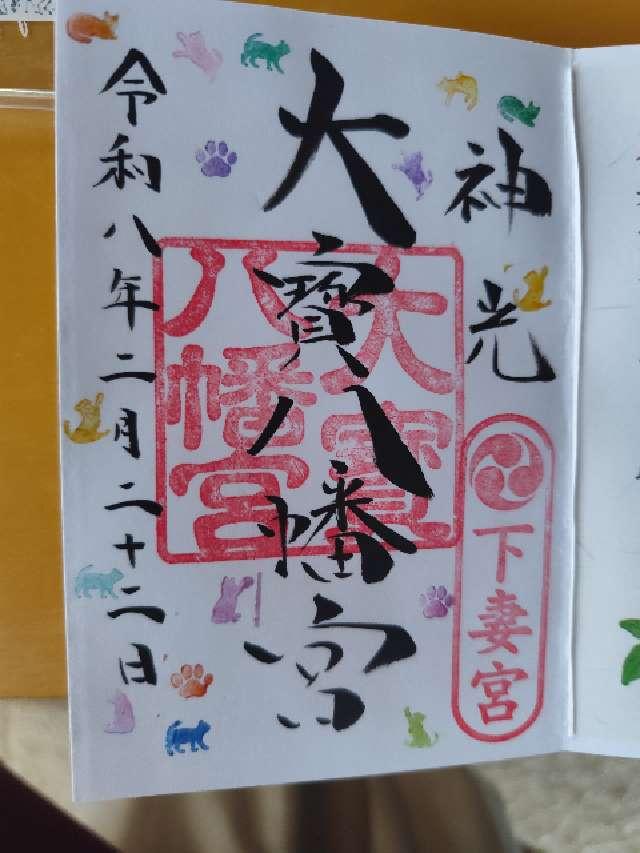 神光
大寳八幡宮
令和八年二月二十二日
大寳
八幡宮
下妻宮